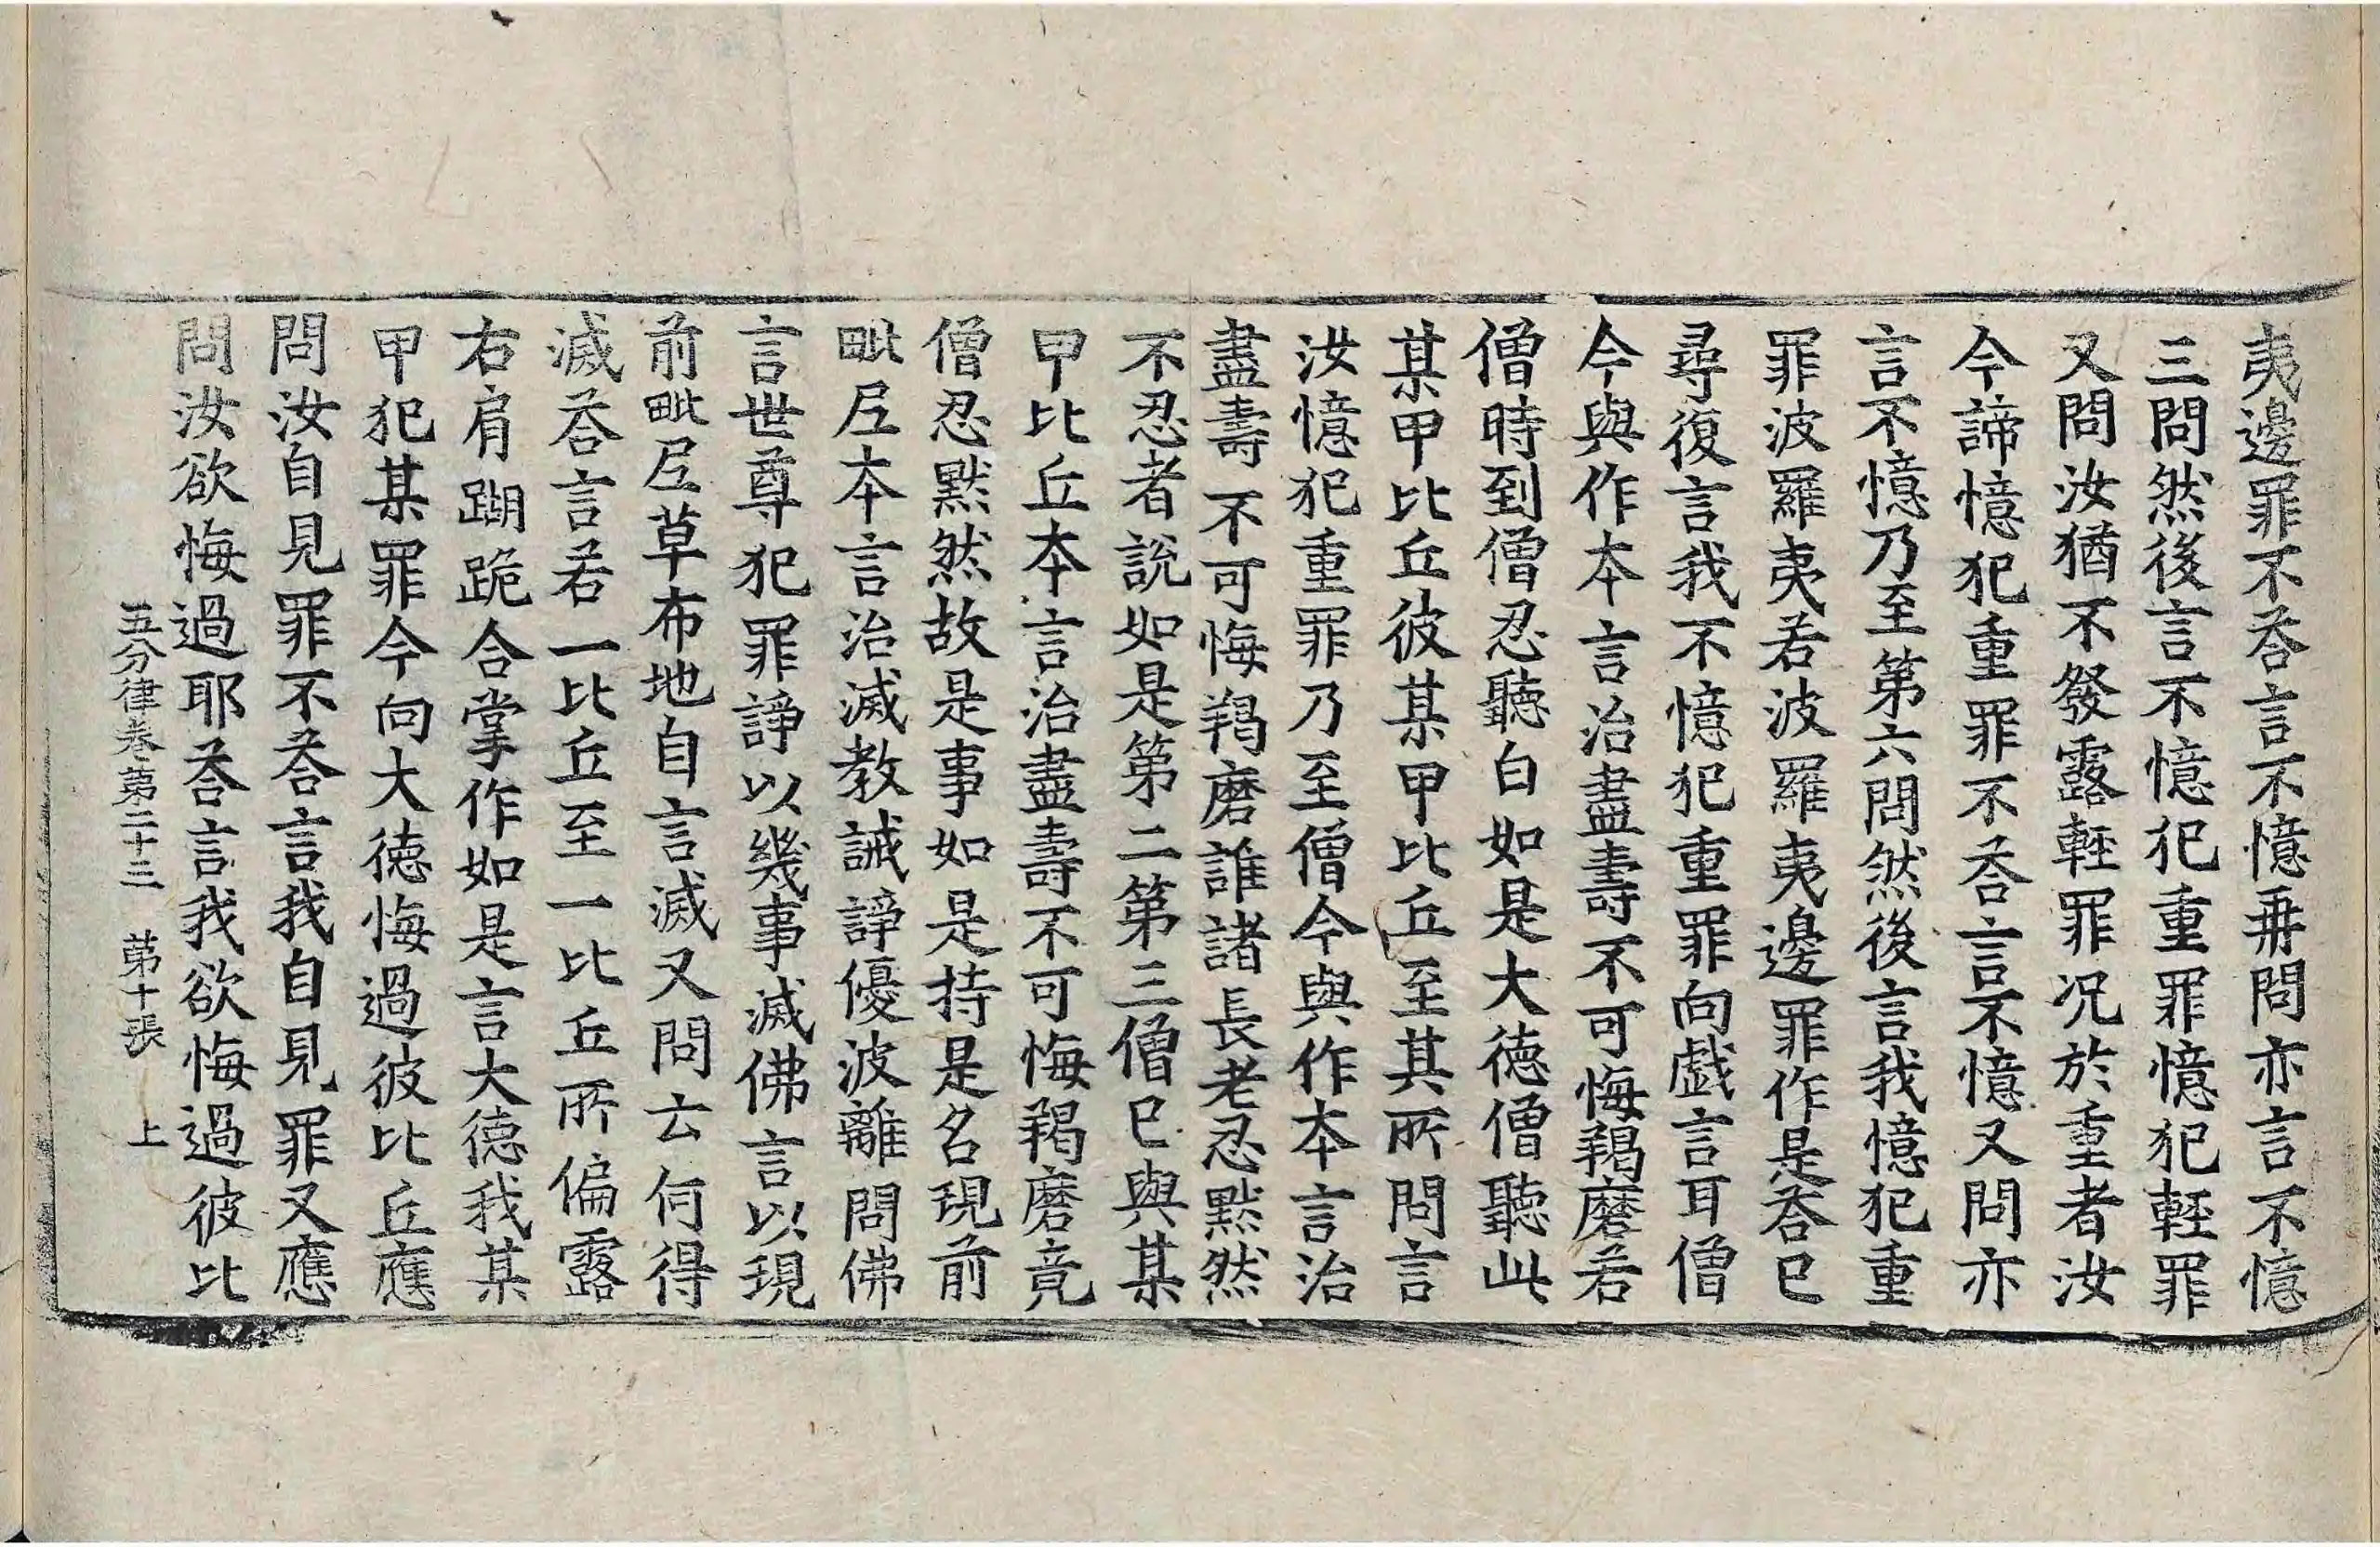 夷邊罪不荅言不憶再問亦言不憶
三問然後言不憶犯重罪憶犯輕罪
又問汝猶不發露輕罪況於重者汝
今諦憶犯重罪不荅言不憶又問亦
言不憶乃至第六問然後言我憶犯重
罪波羅夷若波羅夷邊罪作是荅已
尋復言我不憶犯重罪向戲言耳僧
今與作本言治盡壽不可悔羯磨若
僧時到僧忍聽白如是大德僧聽此
某甲比丘彼某甲比丘至其所問言
汝憶犯重罪乃至僧今與作本言治
盡壽不可悔羯磨誰諸長老忍默然
不忍者說如是第二第三僧已與某
甲比丘本言治盡壽不可悔羯磨竟
僧忍默然故是事如是持是名現前
毗尼本言治滅教誡諍優波離問佛
言世尊犯罪諍以幾事滅佛言以現
前毗尼草布地自言滅又問云何得
滅荅言若一比丘至一比丘所偏露
右肩䠒跪合掌作如是言大德我某
甲犯某罪今向大德悔過彼比丘應
問汝自見罪不荅言我自見罪又應
問汝欲悔過耶荅言我欲悔過彼比
五分律卷第二十三 第十張 上